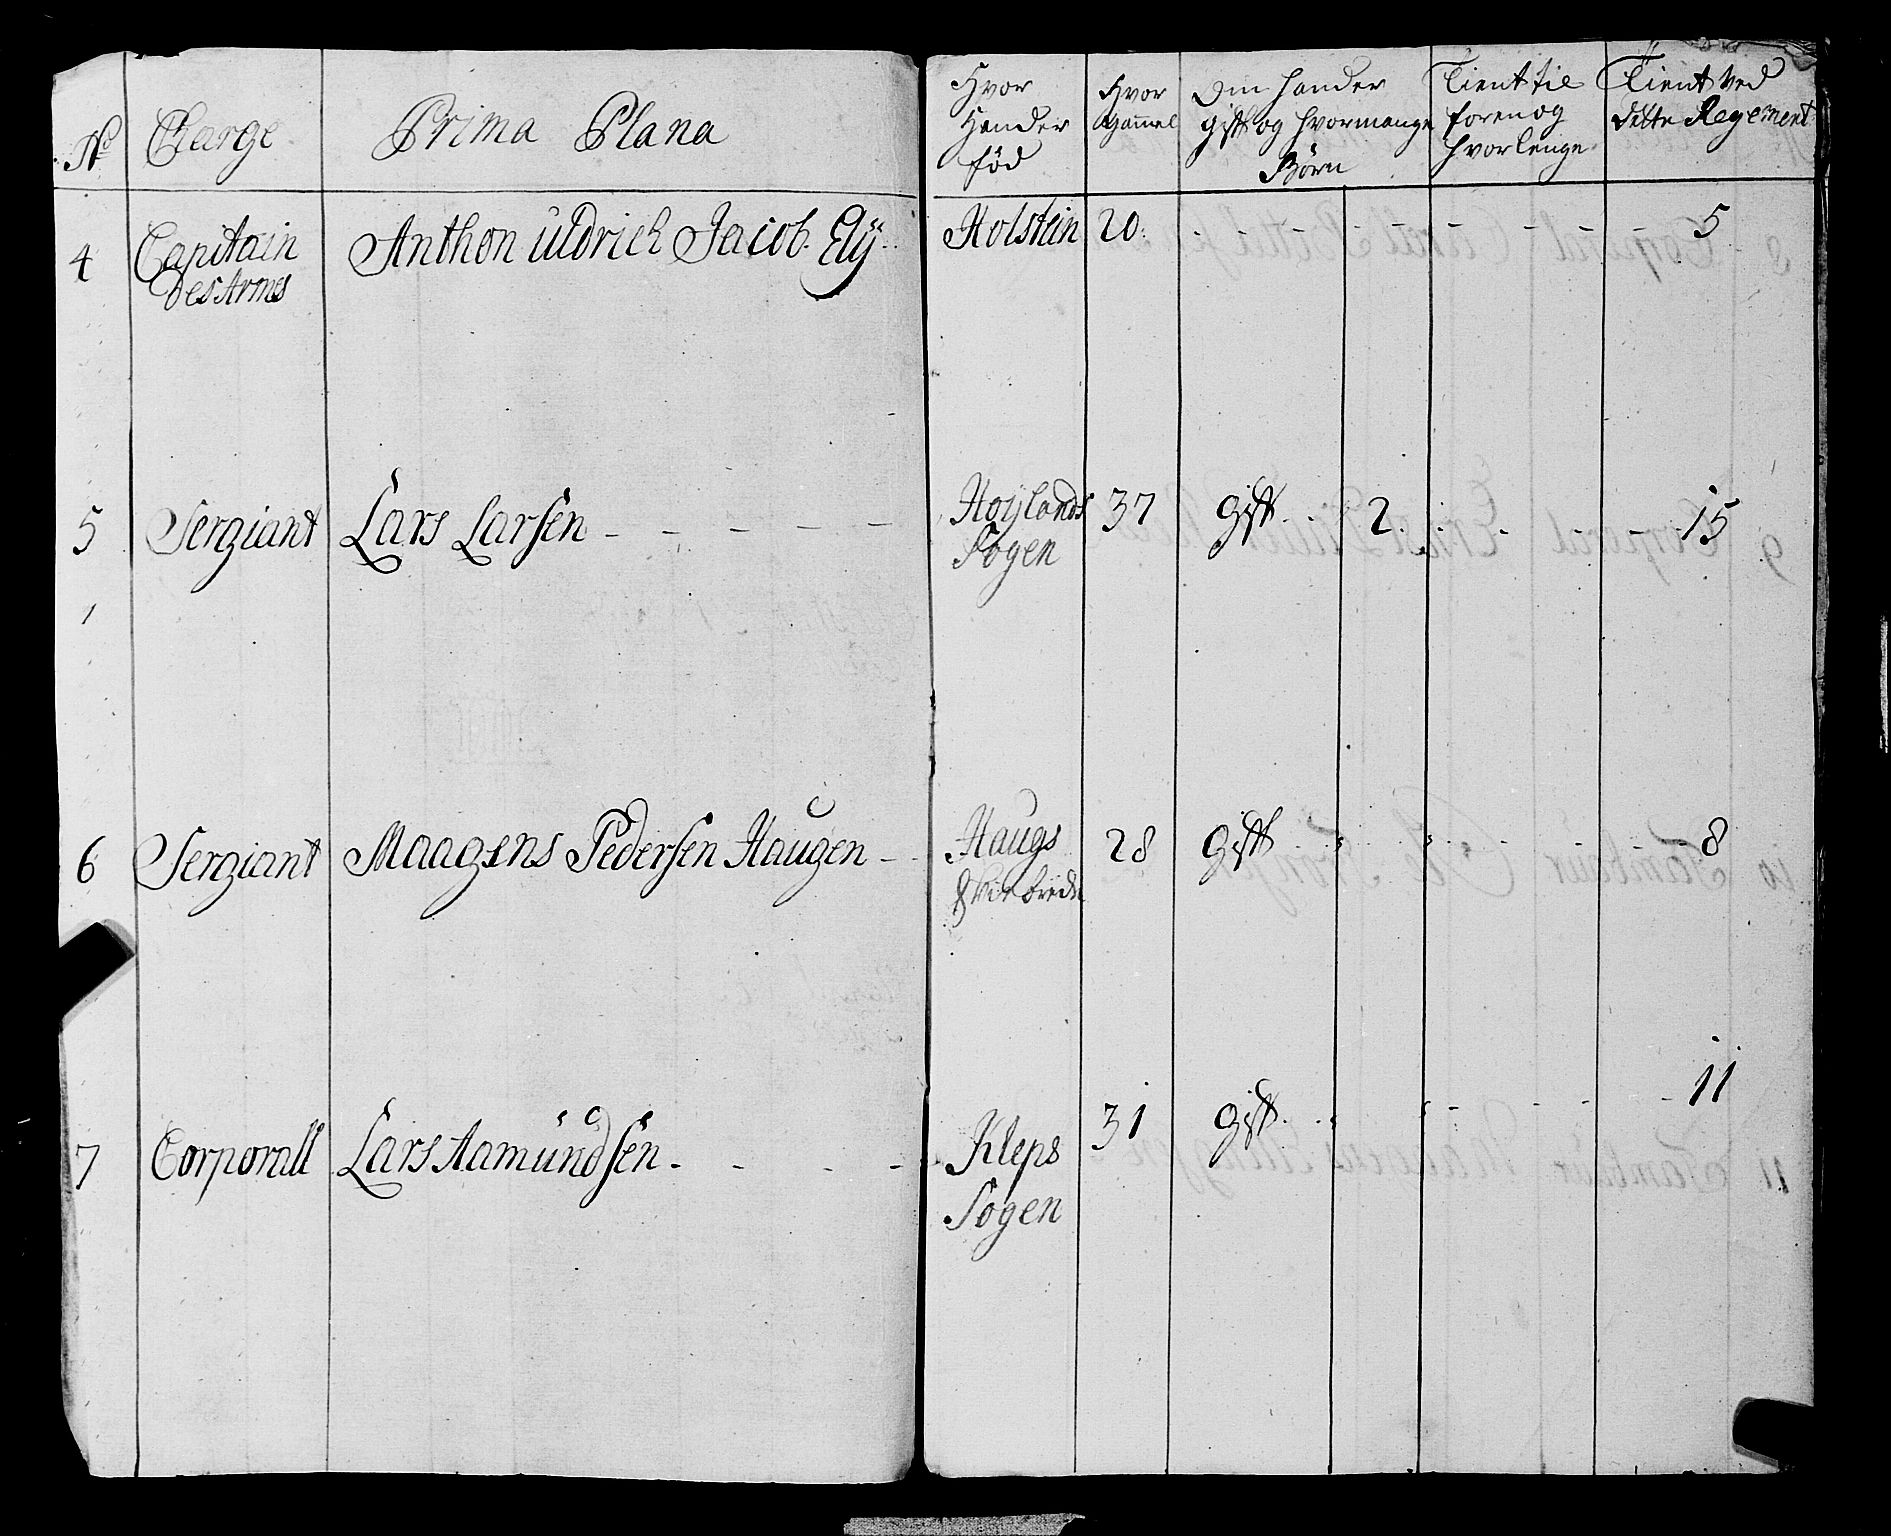 No Charge Prima Plana
Hvor
Hander
fød
Hvor
Gammel
Om hander
gift og hvormange
Børn
Tient til
foren og
hvorlenge
Tient ved
dette Regement
4 Capitain
des Armes
Anthon Uldrich Jacob Elÿ
Holstein 20 5
5 Sergiant Lars Larsen
Hoÿlands
Sogen
37 gift 2 15
6 Sergiant Maagens Pedersen Haugen
Haugs
28 gift 8
7 Corporall Lars Aamundsen
Kleps
Sogen
31 gift 11